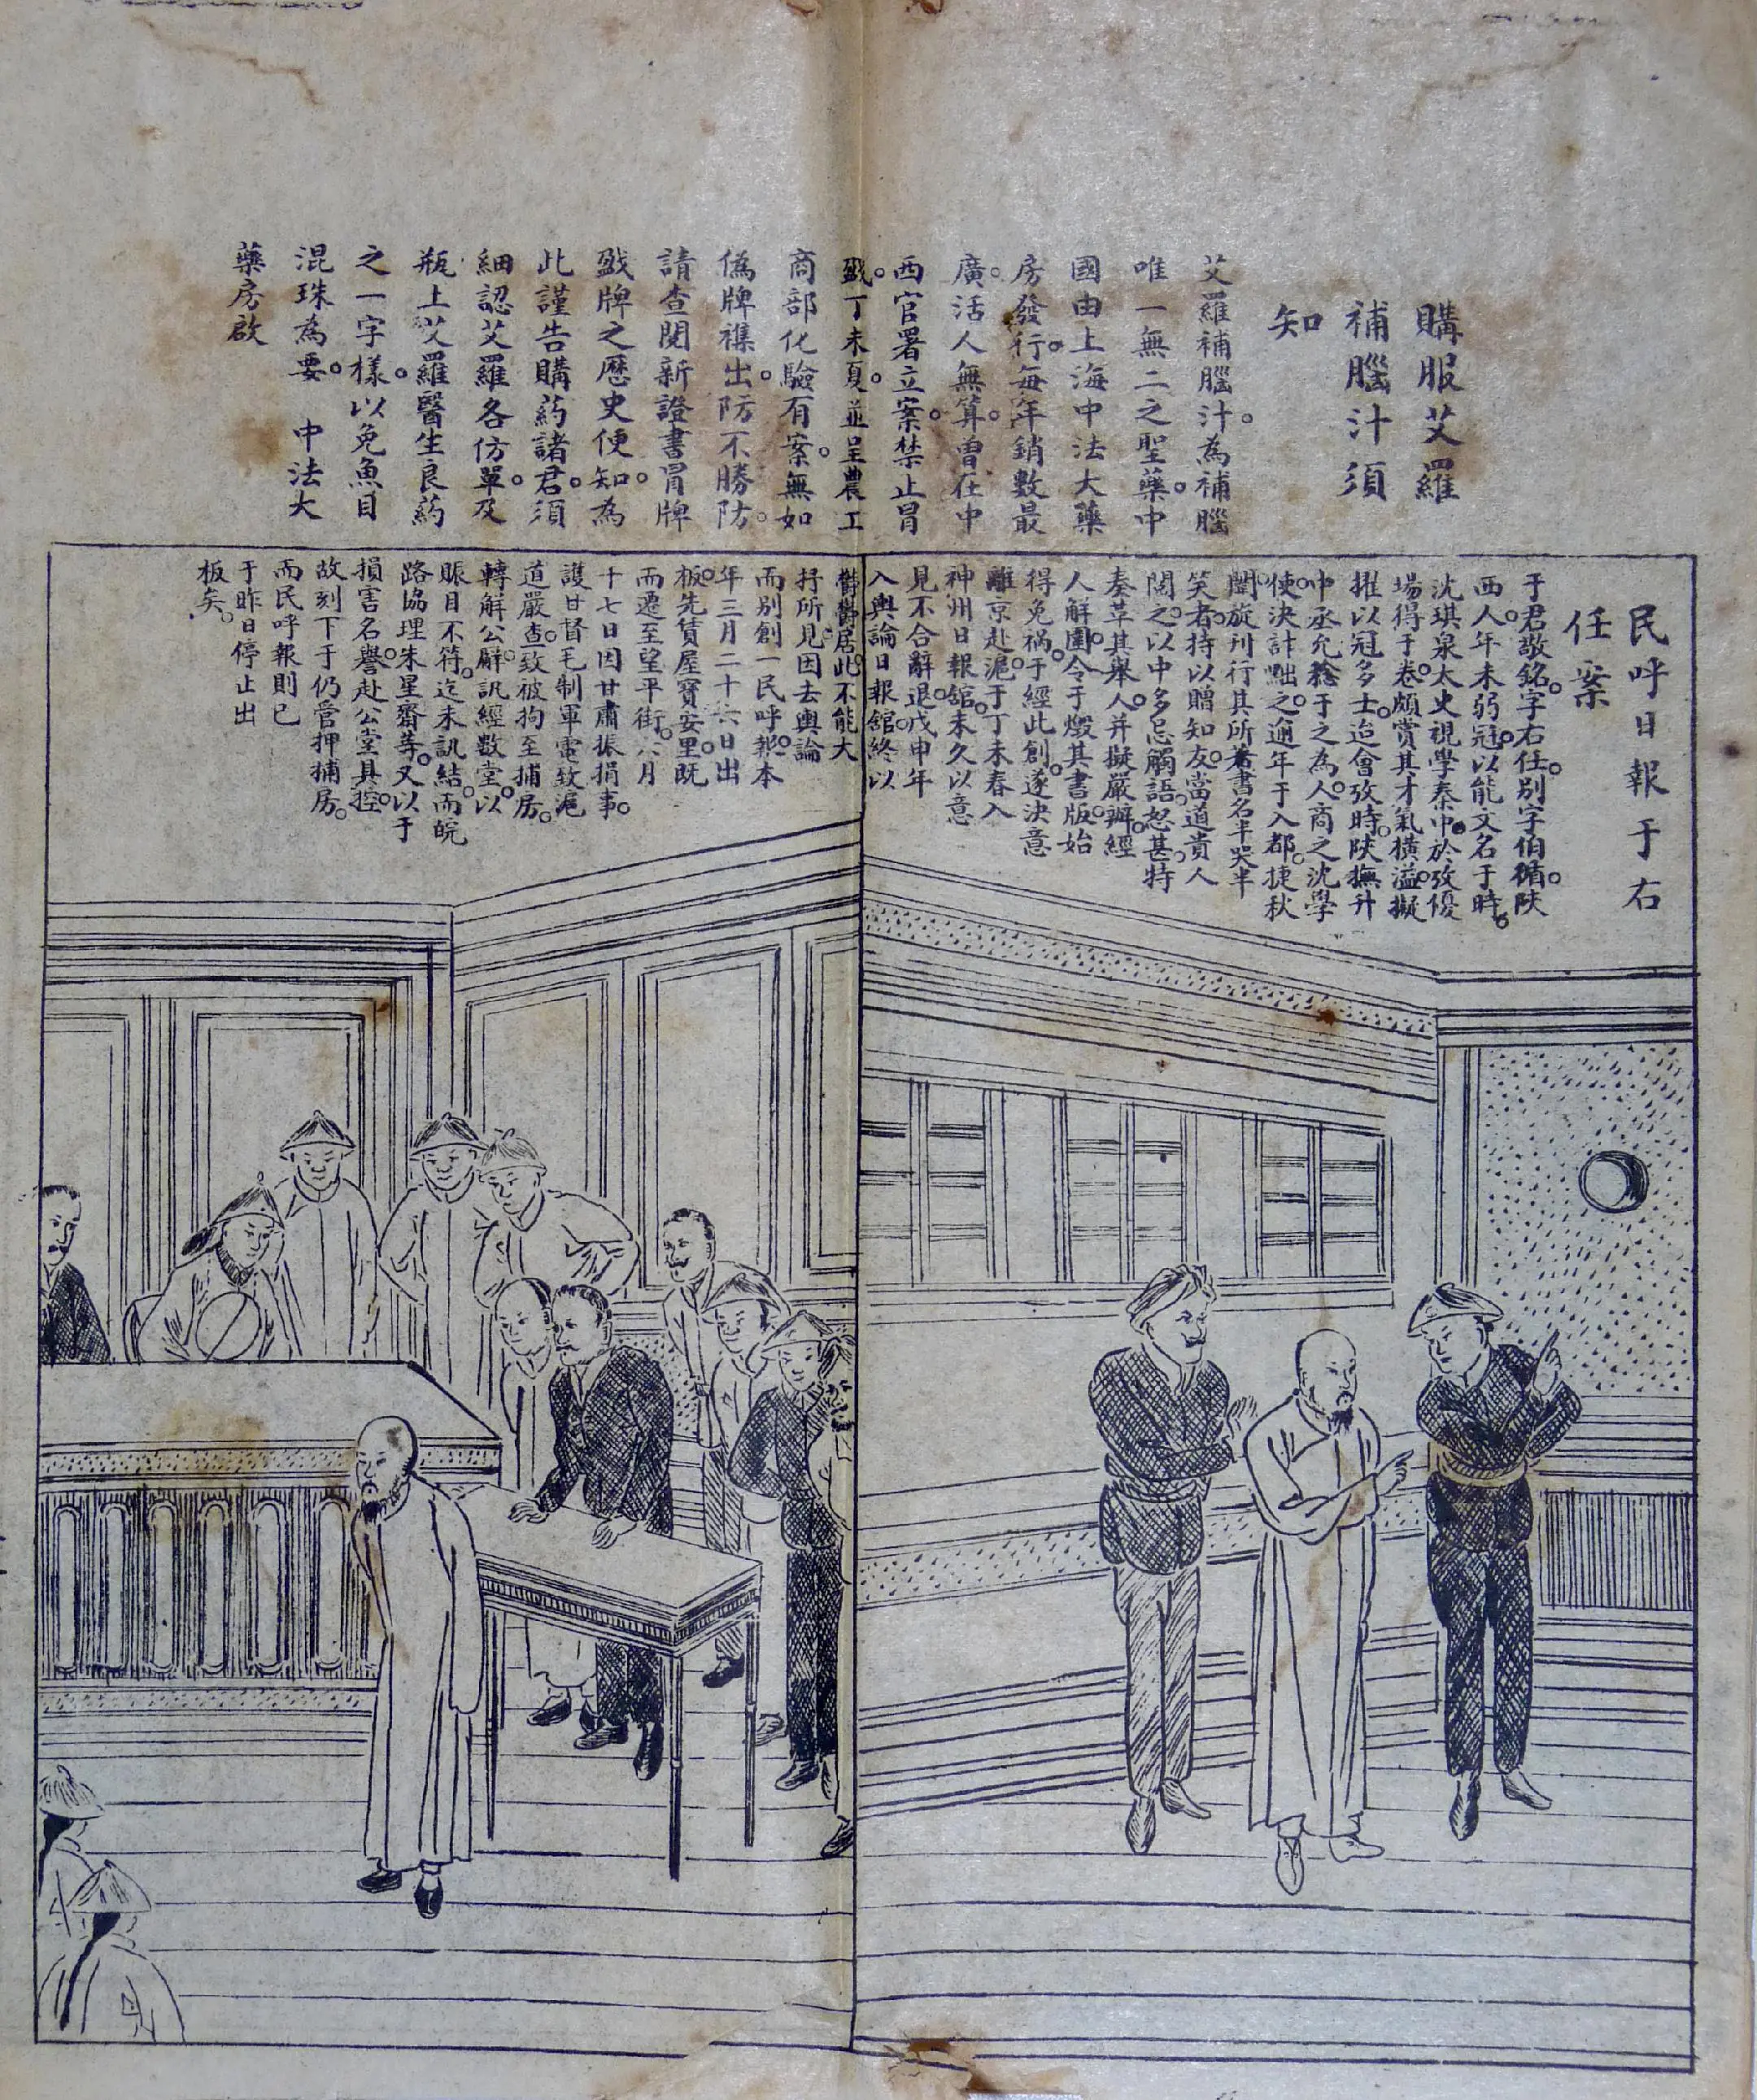 購服艾羅
補腦汁須
知
艾羅補腦汁。為補腦
唯一無二之聖藥。中
國由上海中法大藥
房發行。每年銷數最
廣。活人無算。曾在中
西官署立案。禁止冒
戤。丁未夏。並呈農工
商部化驗有案。無如
偽牌襍出。防不勝防。
請查閱新證書冒牌
戤牌之歷史便知。為
此謹告購葯諸君。須
細認艾羅各仿單。及
瓶上艾羅醫生良葯
之一字樣。以免魚目
混珠為要。 中法大
藥房啟
民呼日報于右
任案
于君敬銘。字右任。別字伯循。陝
西人。年未弱冠。以能文名于時。
沈琪泉太史視學秦中。於攷優
場得于卷。頗賞其才氣橫溢。擬
擢以冠多士。迨會攷時。陝撫升
中丞允稔于之為人。商之沈學
使。決計黜之。逾年于入都。捷秋
闈。旋刊行其所著書名半哭半
笑者。持以贈知友。當道貴人
閱之。以中多忌觸語。怒甚。特
奏革其舉人。并擬嚴辦。經
人解圍。令于燬其書版。始
得免禍。于經此創。遂決意
離京赴滬。于丁未春入
神州日報舘。未久以意
見不合辭退。戊申年
入輿論日報舘。終以
鬱鬱居此。不能大
抒所見。因去輿論
而別創一民呼報。本
年三月二十六日出
板。先賃屋寶安里。既
而遷至望平街。六月
十七日因甘肅振捐事。
護甘督毛制軍電致滬
道嚴查。致被拘至捕房。
轉解公廨。訊經數堂。以
賬目不符。迄未訊結。而皖
路協理朱星齋等。又以于
損害名譽。赴公堂具控。
故刻下于仍管押捕房。
而民呼報則已
于昨日停止出
板矣。